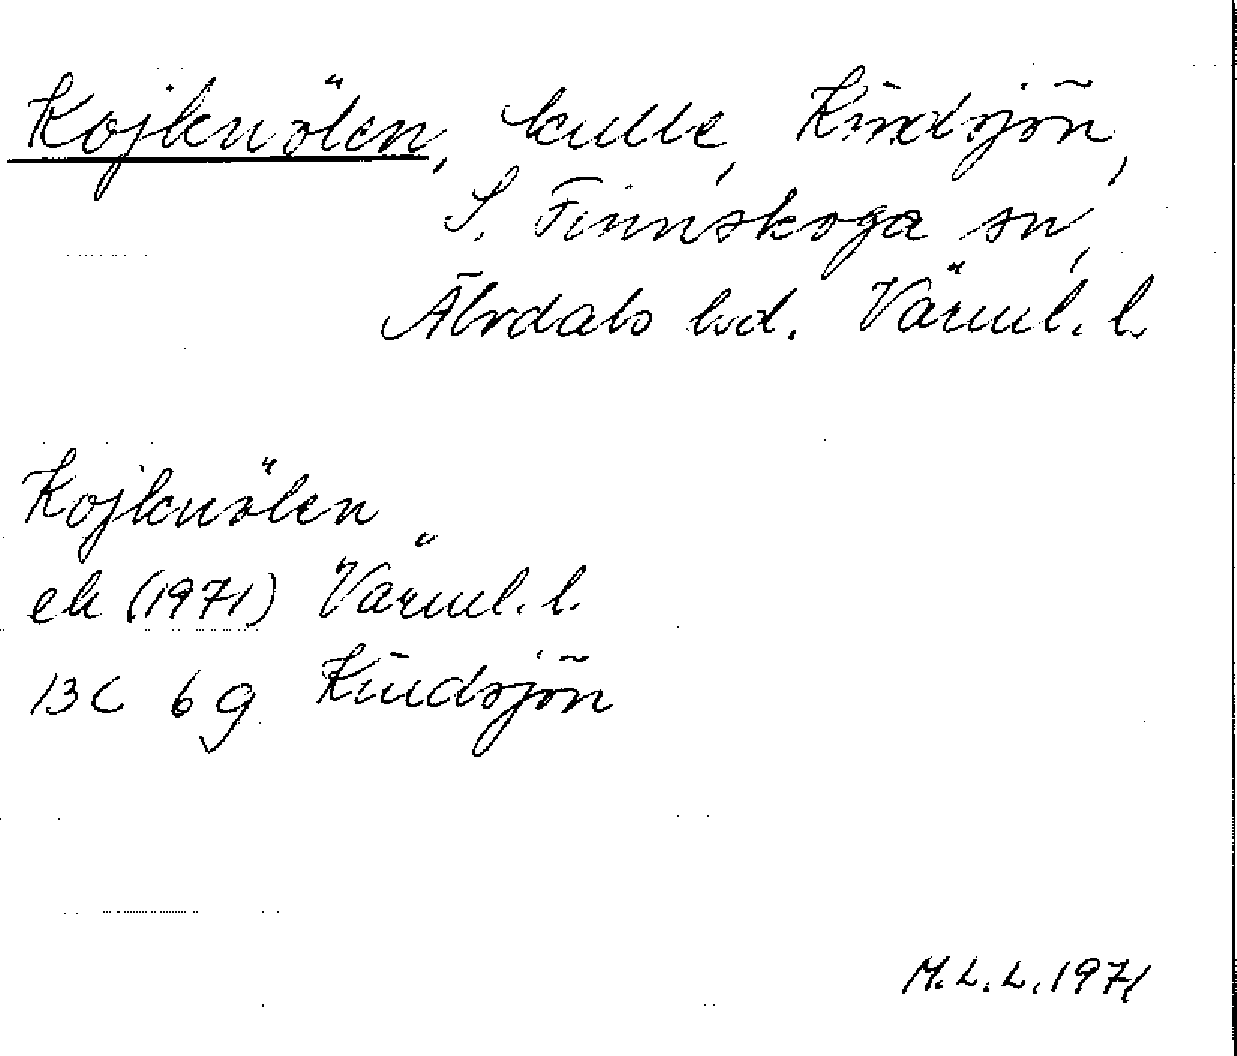 Kojknölen, kulle, Kindsjön,
S. Finnskoga sn,
Älvdals hd. Värml. l.
Kojknölen
ek (1971) Värml. l.
13C 6g Kindsjön
M.L.L. 1971